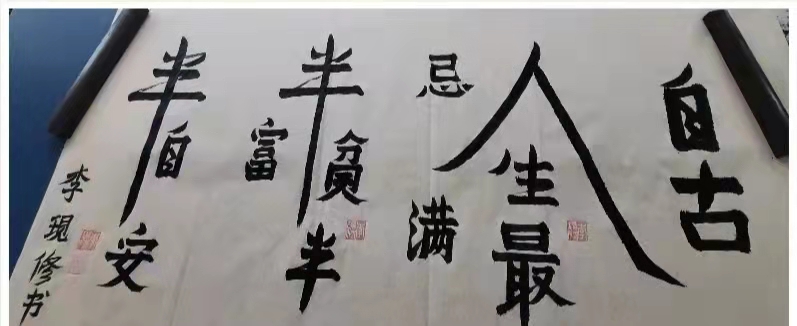 自古
人生最
忌满
半贫半
富
半自安
李現修书